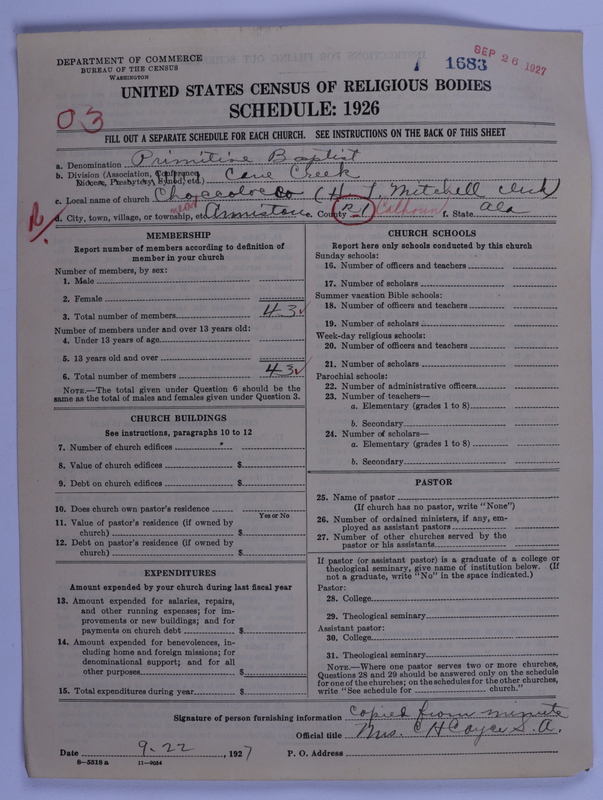 DEPARTMENT OF COMMERCE
BUREAU OF THE CENSUS
WASHINGTON
1683
SEP 26 1927
UNITED STATES CENSUS OF RELIGIOUS BODIES
SCHEDULE: 1926
03
FILL OUT A SEPARATE SCHEDULE FOR EACH CHURCH. SEE INSTRUCTIONS ON THE BACK OF THIS SHEET
a. Denomination Primitive Baptist
b. Division (Association, Conference, Diocese, Presbytery, Synod, etc.) Cane Creek
c. Local name of church Choccolocco (H. J. Mitchell clerk)
d. City, town, village, or township, etc. near Anniston e. County R-1 Calhoun f. State Ala
MEMBERSHIP
Report number of members according to definition of
member in your church
Number of members, by sex:
1. Male
2. Female
3. Total number of members 43
Number of members under and over 13 years old:
4. Under 13 years of age
5. 13 years old and over
6. Total number of members 43
NOTE.—The total given under Question 6 should be the
same as the total of males and females given under Question 3.
CHURCH BUILDINGS
See instructions, paragraphs 10 to 12
7. Number of church edifices
8. Value of church edifices $
9. Debt on church edifices $
10. Does church own pastor's residence
Yes or No
11. Value of pastor's residence (if owned by
church) $
12. Debt on pastor's residence (if owned by
church) $
EXPENDITURES
Amount expended by your church during last fiscal year
13. Amount expended for salaries, repairs,
and other running expenses; for im-
provements or new buildings; and for
payments on church debt $
14. Amount expended for benevolences, in-
cluding home and foreign missions; for
denominational support; and for all
other purposes $
15. Total expenditures during year $
CHURCH SCHOOLS
Report here only schools conducted by this church
Sunday schools:
16. Number of officers and teachers
17. Number of scholars
Summer vacation Bible schools:
18. Number of officers and teachers
19. Number of scholars
Week-day religious schools:
20. Number of officers and teachers
21. Number of scholars
Parochial schools:
22. Number of administrative officers
23. Number of teachers—
a. Elementary (grades 1 to 8)
b. Secondary
24. Number of scholars—
a. Elementary (grades 1 to 8)
b. Secondary
PASTOR
25. Name of pastor
(If church has no pastor, write "None")
26. Number of ordained ministers, if any, em-
ployed as assistant pastors
27. Number of other churches served by the
pastor or his assistants
If pastor (or assistant pastor) is a graduate of a college or
theological seminary, give name of institution below. (If
not a graduate, write "No" in the space indicated.)
Pastor:
28. College
29. Theological seminary
Assistant pastor:
30. College
31. Theological seminary
NOTE.—Where one pastor serves two or more churches,
Questions 28 and 29 should be answered only on the schedule
for one of the churches; on the schedules for the other churches,
write "See schedule for church."
Signature of person furnishing information copied from minute
Official title Mrs. C H Cayce S. A.
Date 9-22, 1927 P. O. Address
8-5518 a 11-9054